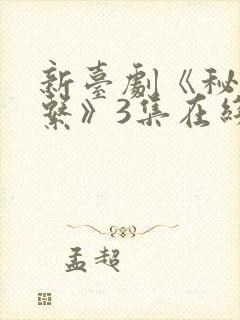 新臺劇《秘
繫》3集在線
孟超